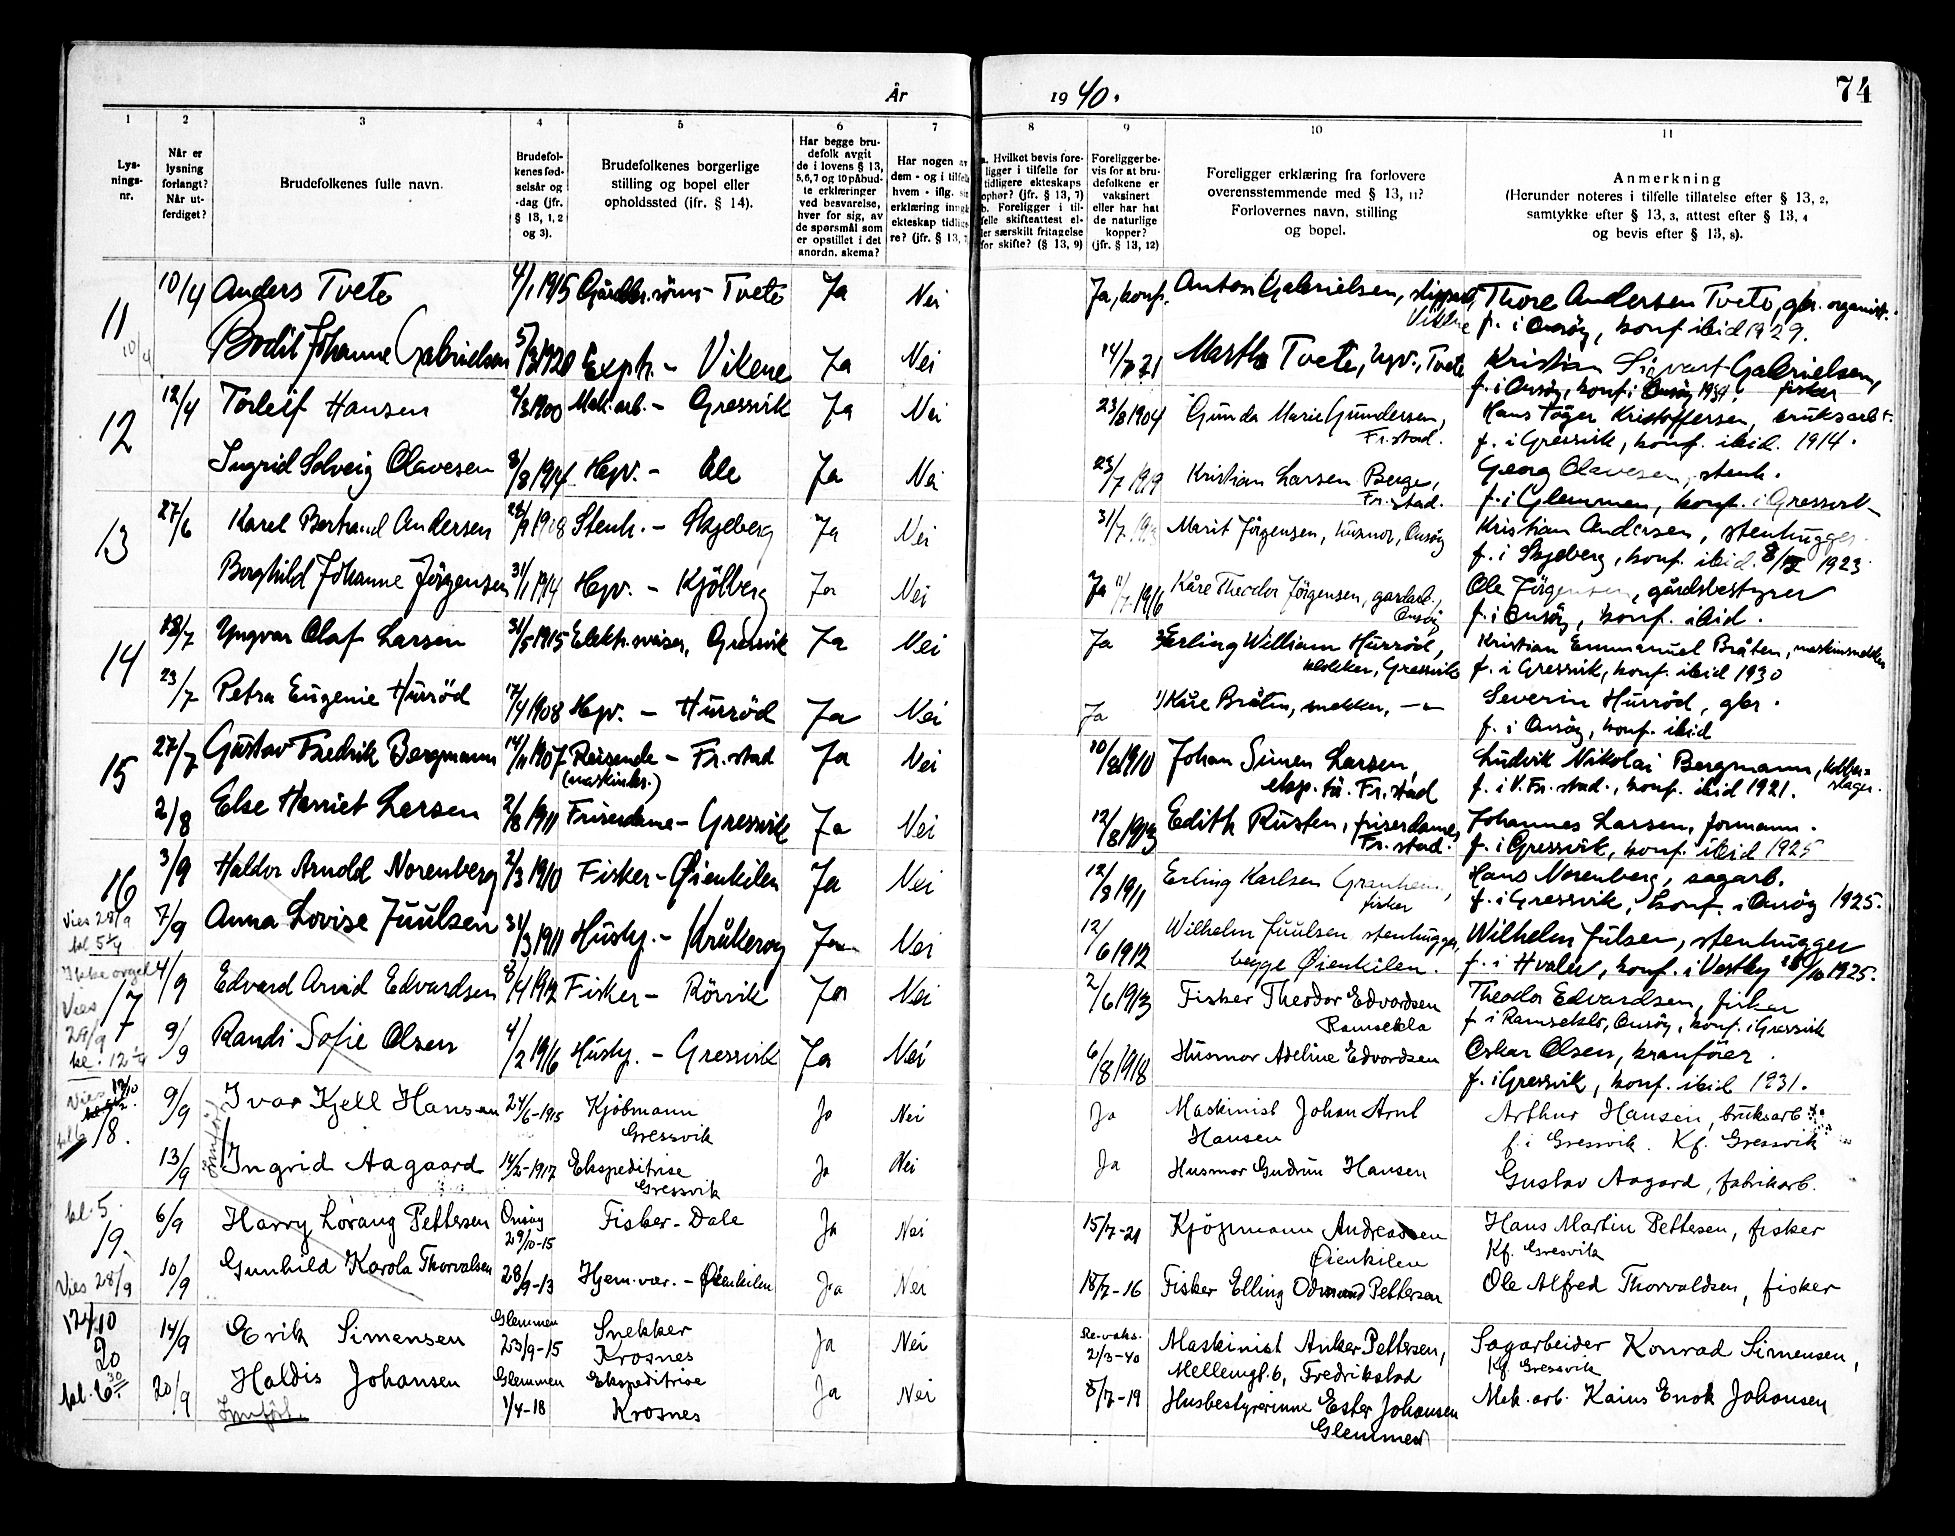 År 1940.
74
1 2 3 4 5 6 7 8 9 10 11
Lysningsnr.
Når er lysning forlangt? Når utferdiget?
Brudefolkenes fulle navn.
Brudefolkenes fødselsår og -dag (jfr. § 13, 1, 2 og 3).
Brudefolkenes borgerlige stilling og bopel eller opholdssted (ifr. § 14).
Har begge brudefolk avgit de i lovens § 13, 5,6,7 og 10 påbudte erklæringer ved besvarelse, hver for sig, av de spørsmål som er opstillet i det anordn. skema?
Har nogen av dem - og i tilfelle hvem - iflg. sin erklæring inngått ekteskap tidligere? (jfr. § 13, 7
a. Hvilket bevis foreligger i tilfelle for tidligere ekteskaps ophør? (jfr. § 13, 7) b. Foreligger i tilfelle skifteattest eller særskilt fritagelse for skifte? (§ 13, 9)
Foreligger bevis for at brudefolkene er vaksinert eller har hat de naturlige kopper? (jfr. § 13, 12)
Foreligger erklæring fra forlovere overensstemmende med § 13, 11? Forlovernes navn, stilling og bopel.
Anmerkning (Herunder noteres i tilfelle tillatelse efter § 13, 2, samtykke efter § 13, 3, attest efter § 13, 4 og bevis efter § 13, 8).
11 10/4 Anders Tvete 4/1 1915 Gårdbr.sønn - Tvete Ja Nei Ja, konf. Anton Gabrielsen, skipper, Vikene Thore Andersen Tvete, gbr. organist.
f. i Onsøy, konf. ibid 1929.
10/4 Bodil Johanne Gabrielsen 5/3 1920 Exptr. - Vikene Ja Nei 14/7 21 Martha Tvete, hgv., Tvete Kristian Sigvart Gabrielsen, fisker
f. i Onsøy, konf. i Onsøy 1934.
12 12/4 Torleif Hansen 2/3 1900 Mek.arb. - Gressvik Ja Nei 23/8 1904 Gunda Marie Gundersen, Fr.stad. Hans Tøger Kristoffersen, bruksarb.
f. i Gressvik, konf. ibid. 1914.
Ingrid Solveig Olavesen 8/8 1914 Hgv. - Ale Ja Nei 23/7 1919 Kristian Larsen Berge, Fr.stad. Georg Olavesen, stenh.
f. i Glemmen, konf. i Gressvik
13 27/6 Karel Bertrand Andersen 28/9 1908 Stenh. - Skjeberg Ja Nei 31/7 Marit Jørgensen, husmor, Onsøy Kristian Andersen, stenhugger
f. i Skjeberg, konf. ibid. 1923
Borghild Johanne Jørgensen 31/1 1914 Hgv. - Kjølberg Ja Nei Ja 11/7 1916 Kåre Theodor Jørgensen, gardarb., Onsøy Ole Jørgensen, gårdsbestyrer
f. i Onsøy, konf. ibid.
14 18/7 Yngvar Olaf Larsen 31/5 1915 Elektr.sveiser, Gressvik Ja Nei Ja Erling William Hurrød, snekker, Gressvik Kristian Emmanuel Bråten, maskinsnekker
f. i Gressvik, konf. ibid 1930
23/7 Petra Eugenie Hurrød 17/4 1908 Hgv. - Hurrød Ja Nei Ja 1) Kåre Bråten, snekker, -"- Severin Hurrød, gbr.
f. i Onsøy, konf. ibid
15 27/7 Gustav Fredrik Bergmann 14/11 1907 Reisende - Fr.stad (maskinkr.) Ja Nei 10/8 1910 Johan Simen Larsen, eksp. bu. Fr.stad Ludvik Nikolai Bergmann, kobberslager.
f. i V. Fr.stad., konf. ibid 1921.
2/8 Else Harriet Larsen 2/8 1911 Friserdame - Gressvik Ja Nei 12/8 1913 Edith Rusten, friserdame, Fr.stad. Johannes Larsen, formann.
f. i Gressvik, konf. ibid 1925
16 3/9 Haldor Arnold Norenberg 2/3 1910 Fisker - Øienkilen Ja Nei 12/8 1911 Erling Karlsen Granheim, fisker Hans Norenberg, sagarb.
f. i Gressvik, konf. i Onsøy 1925.
Vies 28/9 kl 5 1/4
7/9 Anna Lovise Juulsen 31/3 1911 Hushj. - Kråkerøy Ja Nei 12/6 1912 Wilhelm Juulsen stenhugger, begge Øienkilen. Wilhelm Julsen, stenhugger
f. i Hvaler, konf. i Vestby 1925.
Ikke orgel
17 4/9 Edvard Arvid Edvardsen 8/4 1912 Fisker - Rørvik Ja Nei 2/6 1913 Fisker Theodor Edvardsen Ramsekla Theodor Edvardsen, fisker
f. i Ramseklo, Onsøy, konf. i Gressvik
Vies 29/9 kl. 12 1/4
9/9 Randi Sofie Olsen 4/2 1916 Hushj. - Gressvik Ja Nei 6/8 1918 Husmor Adeline Edvardsen Oskar Olsen, kranfører.
f. i Gressvik, konf. ibid 1931.
Vies 12/10 kl 6
18. 9/9 Ivar Kjell Hansen 24/6-1915 Kjøbmann Gressvik Ja Nei Ja Maskinist Johan Arnt Hansen Arthur Hansen, bruksarb
f. i Gressvik. Kf. Gressvik
13/9 Ingrid Aagaard 14/2-1917 Ekspeditrise Gressvik Ja Nei Ja Husmor Gudrun Hansen Gustav Aagard, fabrikarb.
kl. 5.
19. 6/9 Harry Lorang Pettersen Onsøy 29/10-15 Fisker - Dale Ja Nei 15/7-21 Kjøpmann Andreassen Øienkilen Hans Martin Pettersen, fisker
Kf. Gresvik
Vies 28/9
10/9 Gunhild Karola Thorvalsen 28/9-13 Hjem.vær. - Øienkilen Ja Nei 18/7-16 Fisker Elling Odmund Pettersen Ole Alfred Thorvaldsen, fisker
12 4/10
20 14/9 Erik Simensen Glemmen 23/9-15 Snekker Krosnes Ja Nei Re-vaks. 2/3-40 Maskinist Anker Pettersen, Mellemgt. 6, Fredrikstad Sagarbeider Konrad Simensen,
Kf. Gressvik
kl. 6 30
20/9 Haldis Johansen Glemmen 1/4-18 Ekspeditrise Krosnes Ja Nei 8/7-19 Husbestyrerinne Ester Johansen Glemmen Mek. arb. Kains Enok Johansen